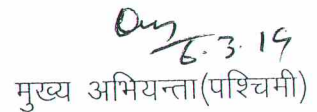 6.3.19
मुख्य अभियन्ता(पश्चिमी)